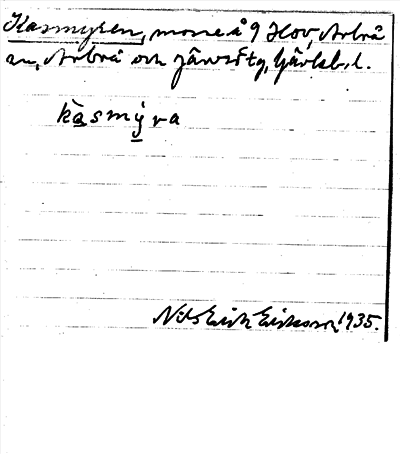 Kasmyren, mosse å 9 Hov, Arbrå
sn, Arbrå och Järvsö tg, Gävleb. l.
kàsmýra
Nils Erik Eriksson 1935.